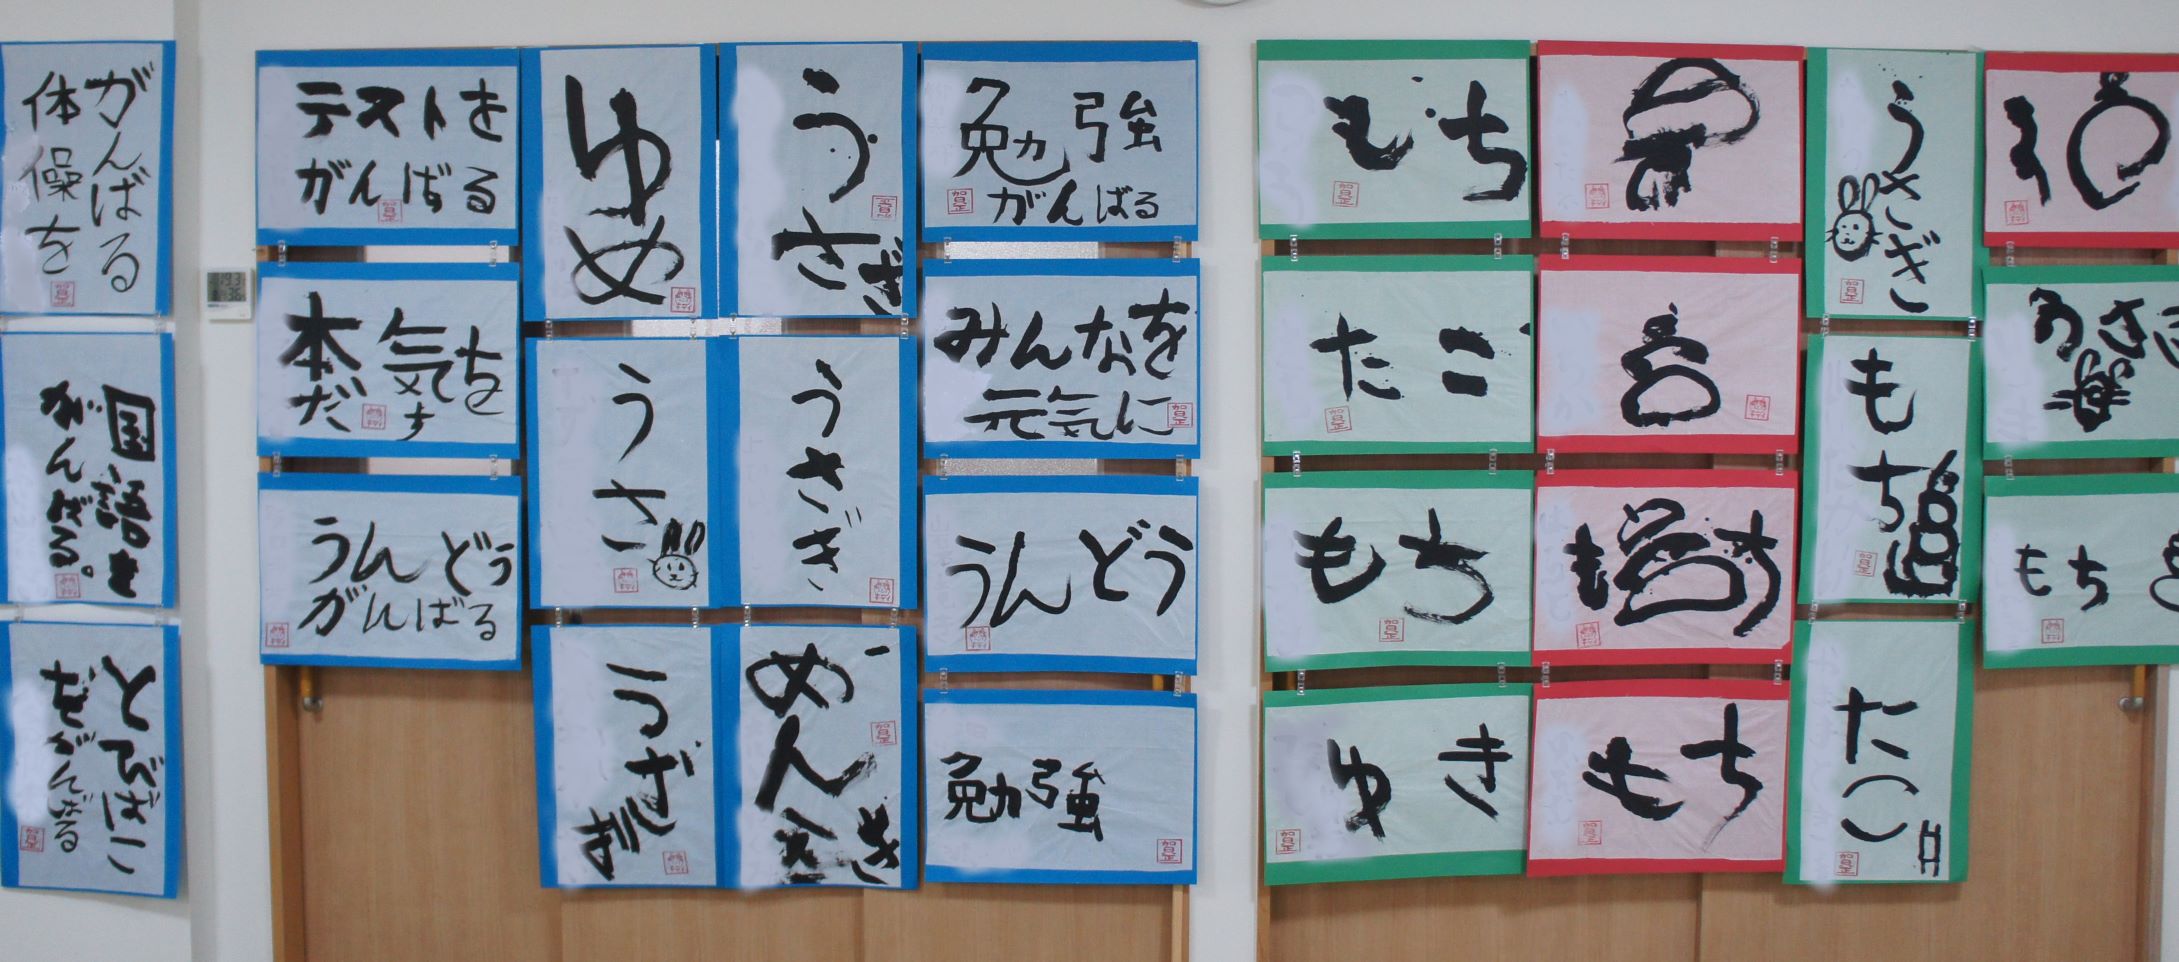 がんばる
体操を
国語を
がんばる。
とびばこ
をがんばる
テストを
がんばる
本気を
だす
うんどう
がんばる
ゆめ
うさ
うさぎ
うさぎ
うさぎ
勉強
がんばる
みんなを
元気に
うんどう
勉強
もち
たこ
もち
ゆき
もち
もち
うさぎ
もち
たこ
うさ
もち